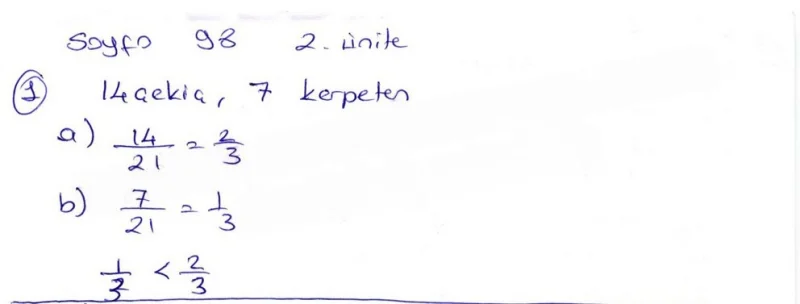 Sayfa 98 2. ünite
1 14 çekiç, 7 kerpeten
a) 14/21 = 2/3
b) 7/21 = 1/3
1/3 < 2/3